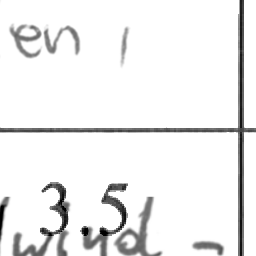 en,
3.5
wind -